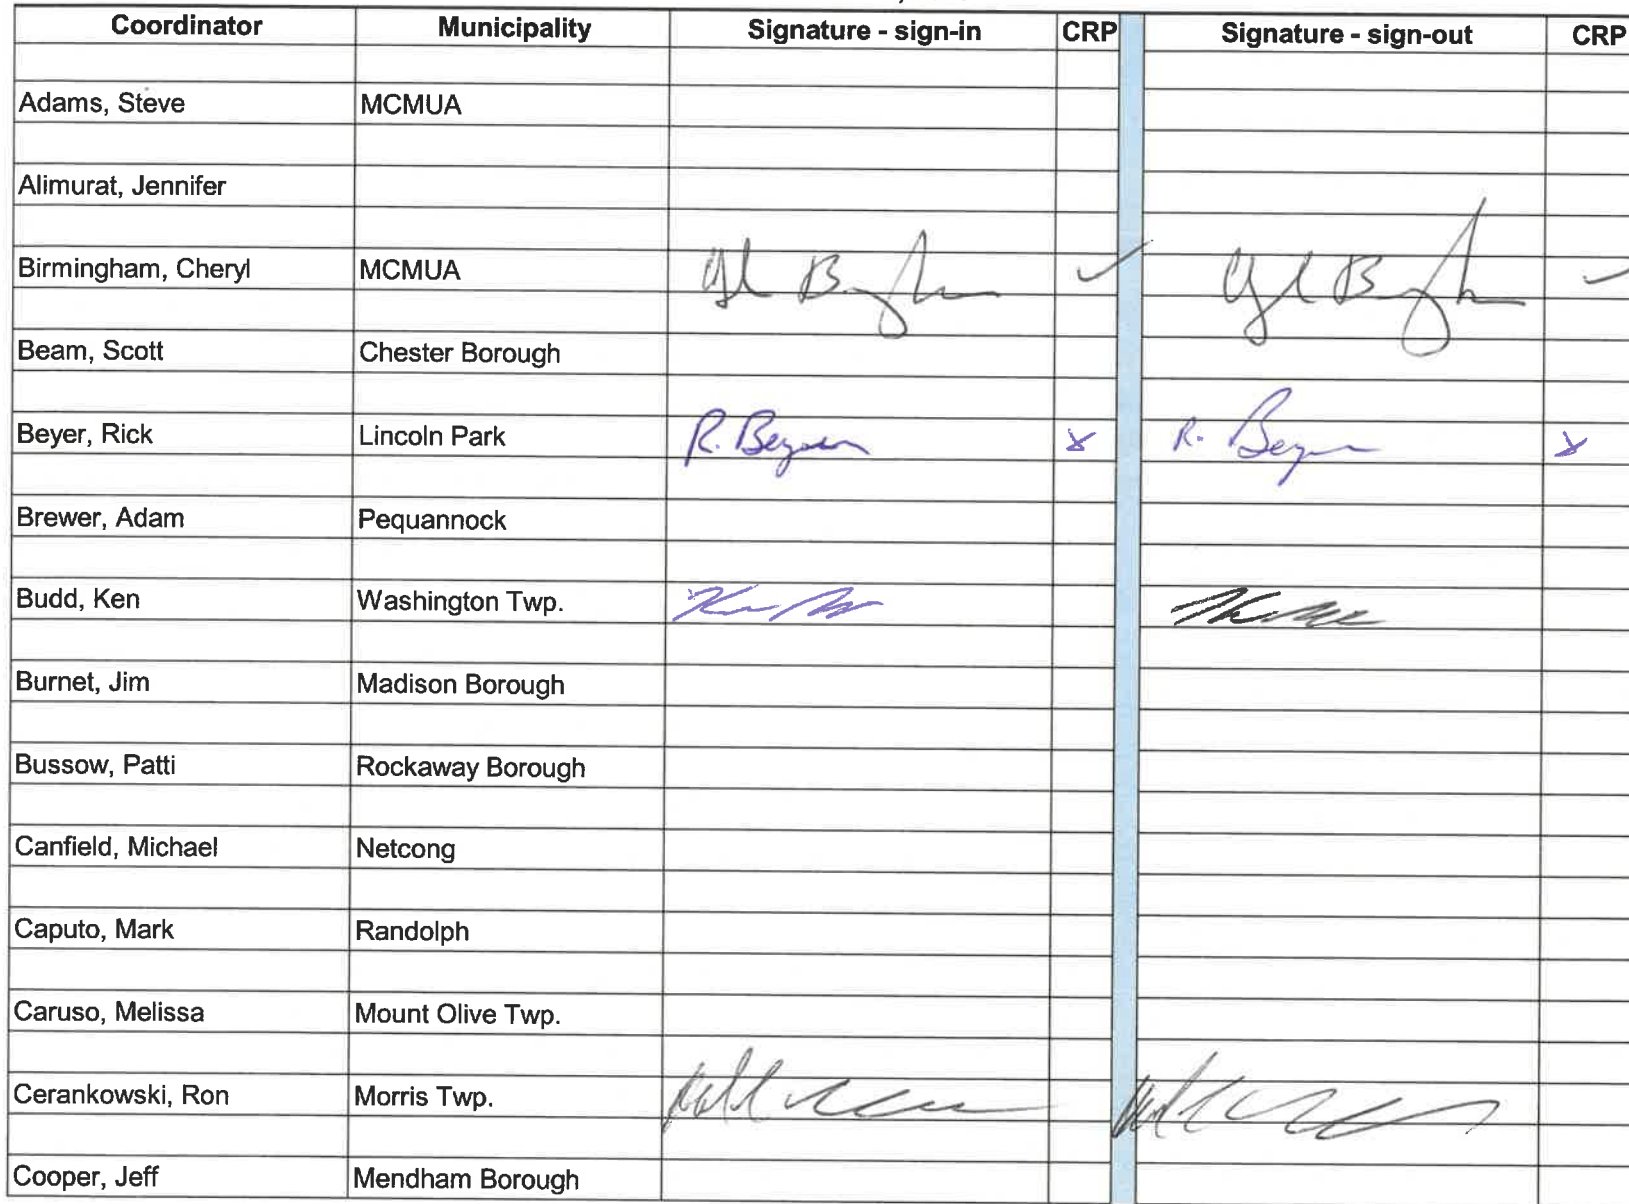 Coordinator Municipality Signature - sign-in CRP Signature - sign-out CRP
Adams, Steve MCMUA
Alimurat, Jennifer
Birmingham, Cheryl MCMUA
Beam, Scott Chester Borough
Beyer, Rick Lincoln Park R. Beyer x R. Beyer x
Brewer, Adam Pequannock
Budd, Ken Washington Twp.
Burnet, Jim Madison Borough
Bussow, Patti Rockaway Borough
Canfield, Michael Netcong
Caputo, Mark Randolph
Caruso, Melissa Mount Olive Twp.
Cerankowski, Ron Morris Twp.
Cooper, Jeff Mendham Borough